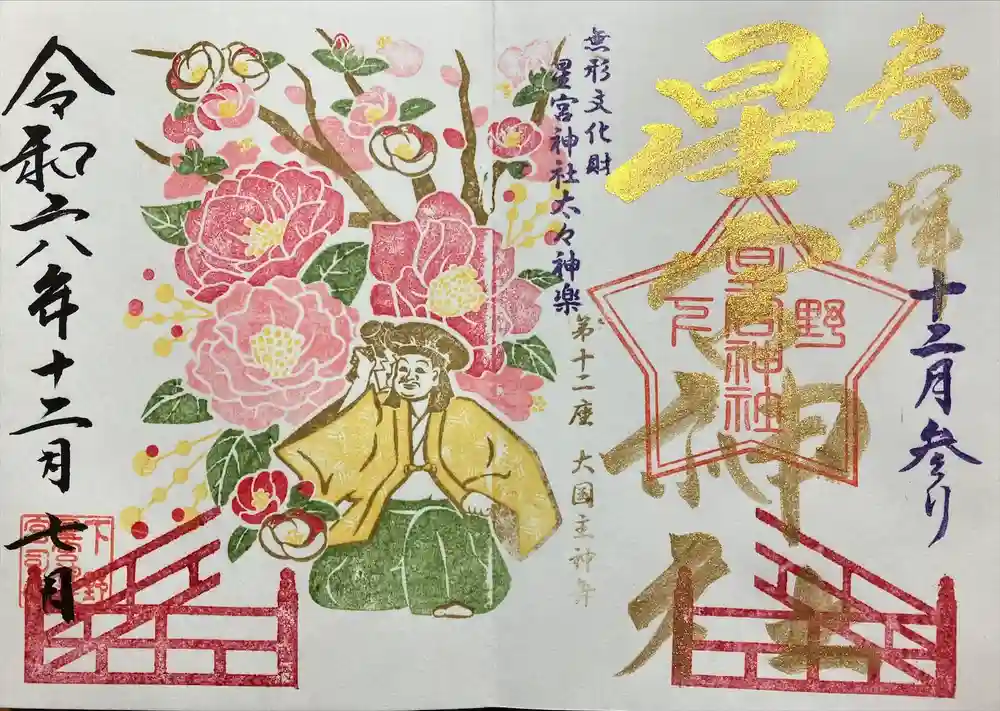 奉拝
十二月参り
星宮神社
下野
星宮神社
無形文化財
星宮神社太々神楽
第十二座 大国主神舞
令和六年十二月七日